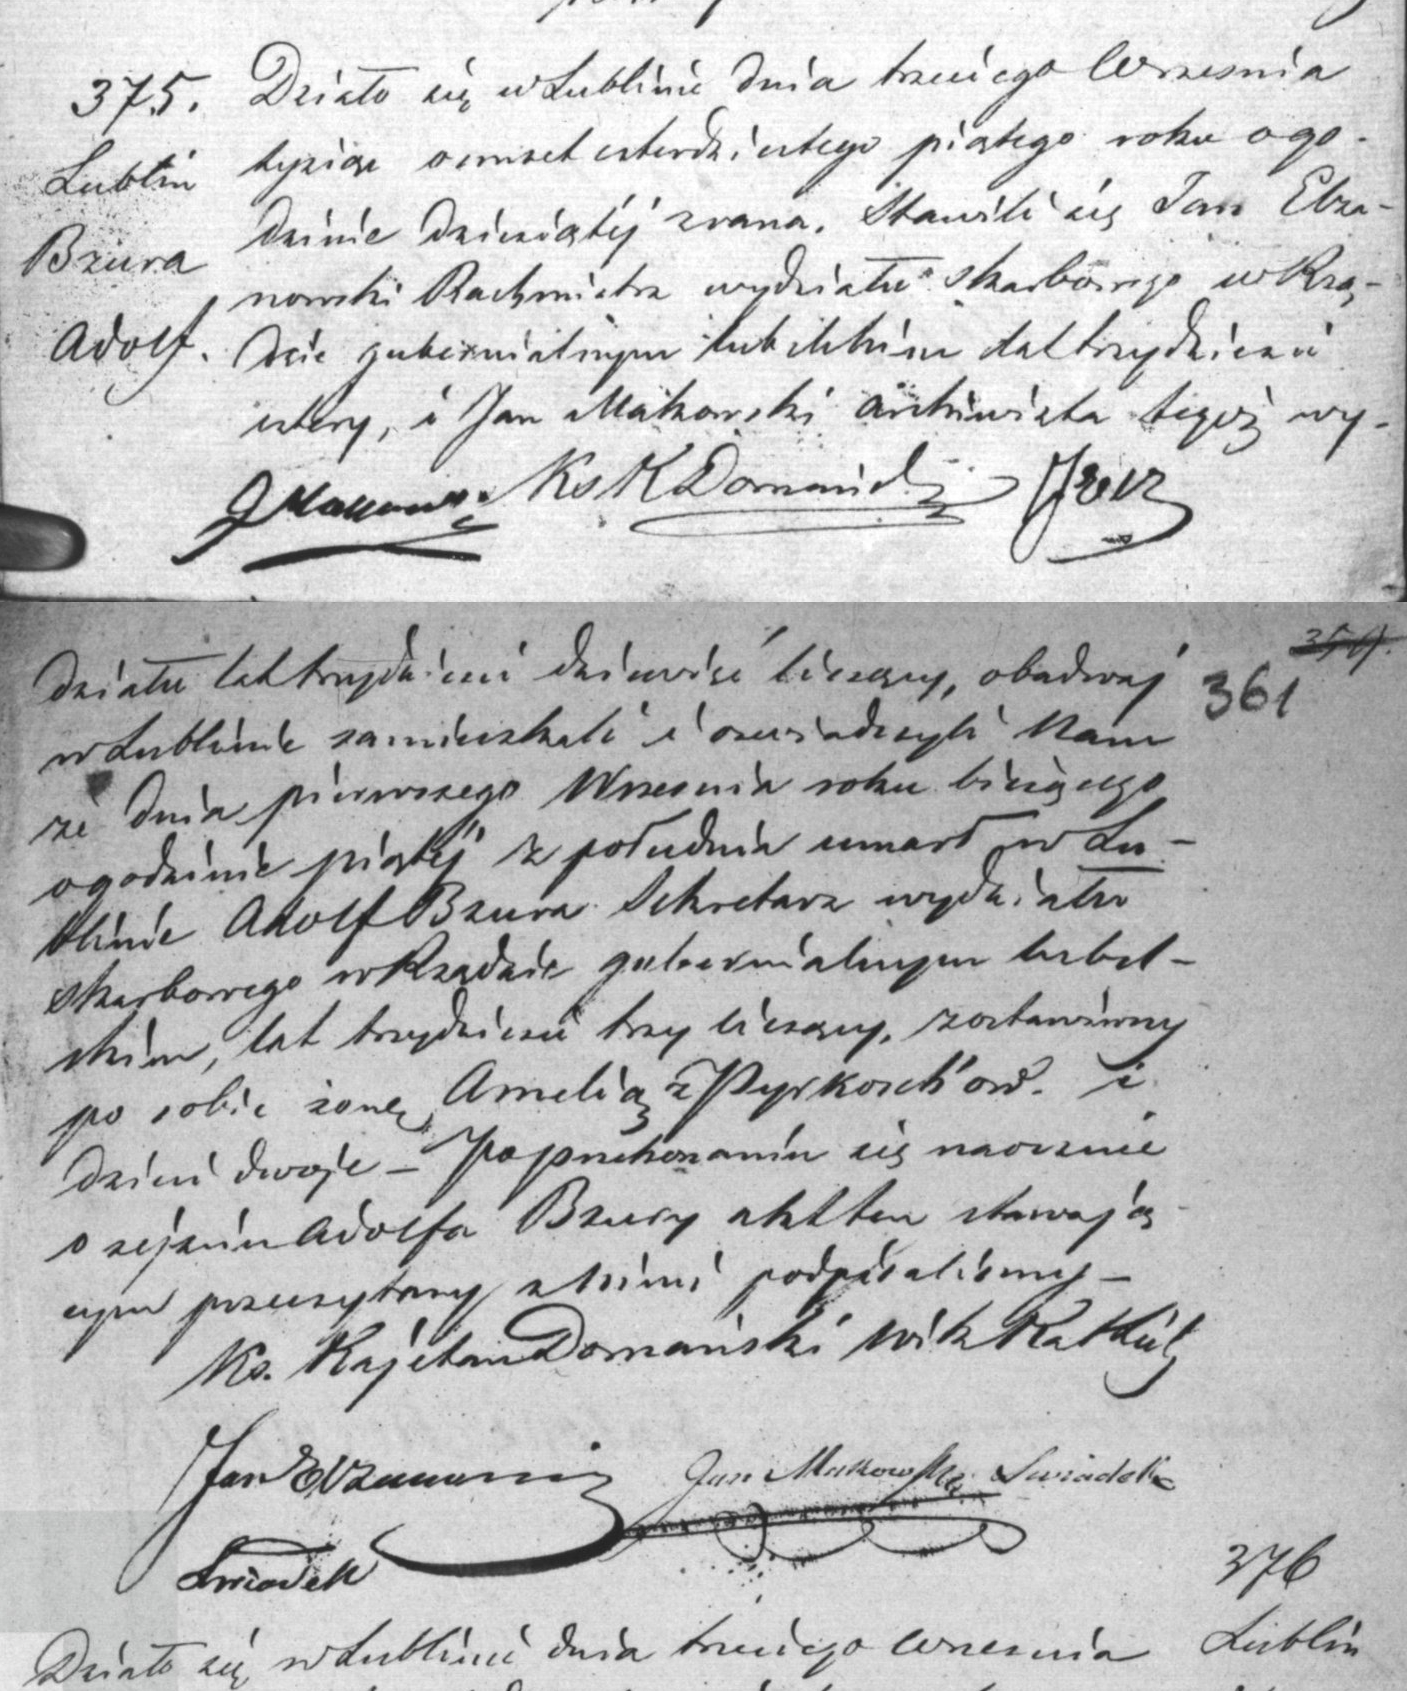 375.
Lublin
Bzura
Adolf.
Działo się w Lublinie dnia trzeciego Wrzesnia
tysiąc osmset czterdziestego piątego roku o go-
dzinie dziesiątéj zrana. Stawili się Jan Elza-
nowski Rachmistrz wydziału skarbowego w Rzą-
dzie gubernialnym lubelskim lat trzydzieści
cztery, i Jan Makowski archiwista tegóż wy-
JMakowski Ks K Domański
361
działu lat trzydzieści dziewięć liczący, obadwaj
w Lublinie zamieszkali i oswiadczyli Nam
że dnia pierwszego Wrzesnia roku bieżącego
o godzinie piątéj z południa umarł w Lu-
blinie Adolf Bzura Sekretarz wydziału
skarbowego w Rządzie gubernialnym lubel-
skim, lat trzydzieści trzy liczący, zostawiwszy
po sobie żonę Amelią z Pyrkoschów. i
dzieci dwoje - Po przekonaniu się naocznie
o zejściu Adolfa Bzury akt ten stawają
cym przeczytany z nimi podpisaliśmy -
Ks. Kajetan Domański Wik Kat Lub
Jan Elzanowski Jan Makowski Swiadek
Swiadek
376
Lublin
Działo się w Lublinie dnia trzeciego Wrzesnia